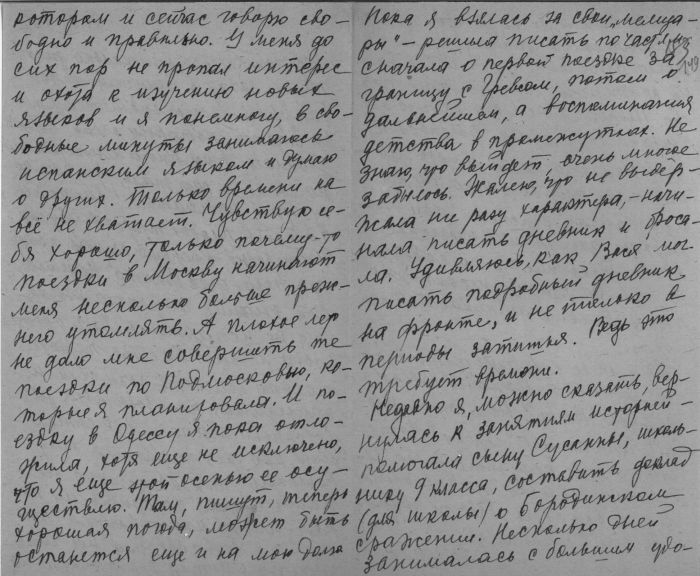 котором и сейчас говорю сво-
бодно и правильно. У меня до
сих пор не пропал интерес
и охота к изучению новых
языков и я понемногу, в сво-
бодные минуты занимаюсь
испанским языком и думаю
о других. Только времени на
всё не хватает. Чувствую се-
бя хорошо, только почему-то
поездки в Москву начинают
меня несколько больше преж-
него утомлять. А плохое лето
не дало мне совершить те
поездки по Подмосковью, ко-
торые я планировала. И по-
ездку в Одессу я пока отло-
жила, хотя еще не исключено,
что я еще этой осенью ее осу-
ществлю. Там, пишут, теперь
хорошая погода, может быть
останется еще и на мою долю
Пока я взялась за свои „мемуа-
ры" – решила писать по частям
сначала о первой поездке за
границу с Гревсом, потом о
дальнейшем, а воспоминания
детства в промежутках. Не
знаю, что выйдет, очень многое
забылось. Жалею, что не выдер-
жала ни разу характера, – начи-
нала писать дневник и броса-
ла. Удивляюсь, как Вася мог
писать подробный дневник
на фронте, и не только в
периоды затишья. Ведь это
требует времени.
Недавно я, можно сказать, вер-
нулась к занятиям историей –
помогала сыну Сусанны, школь-
нику 9 класса, составить доклад
(для школы) о бородинском
сражении. Несколько дней
занималась с большим удо-